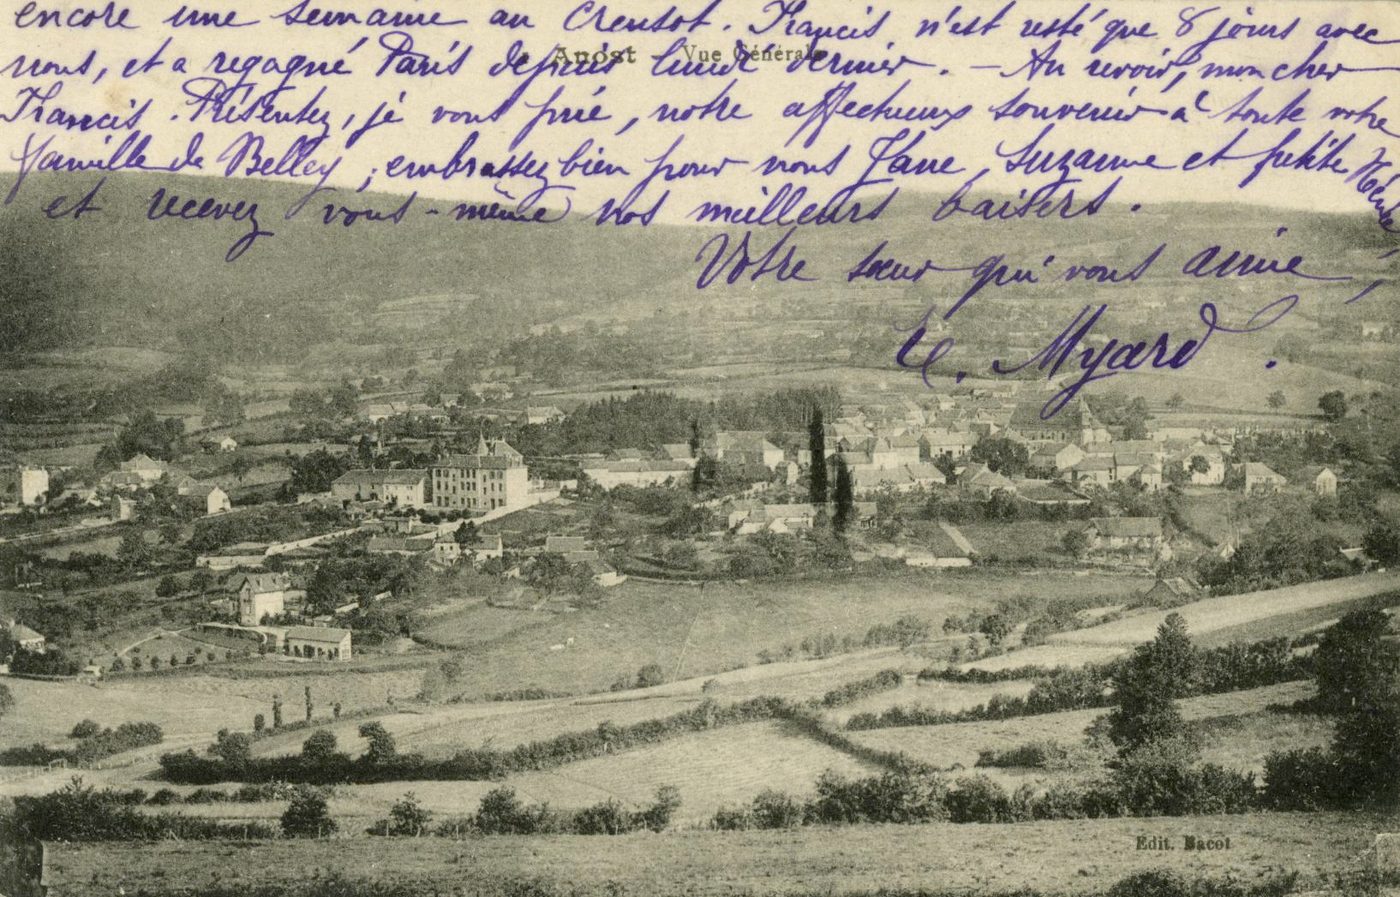 encore une semaine au Creusot. Francis n'est resté que 8 jours avec
Anost – Vue Générale
nous, et a regagné Paris depuis lundi dernier. – Au revoir, mon cher
Francis. Présentez, je vous prie, notre affectueux souvenir à toute votre
famille de Belley ; embrassez bien pour nous Jane, Suzanne et petite
et recevez vous-même nos meilleurs baisers.
Votre sœur qui vous aime,
C. Myard.
Edit. Bacot